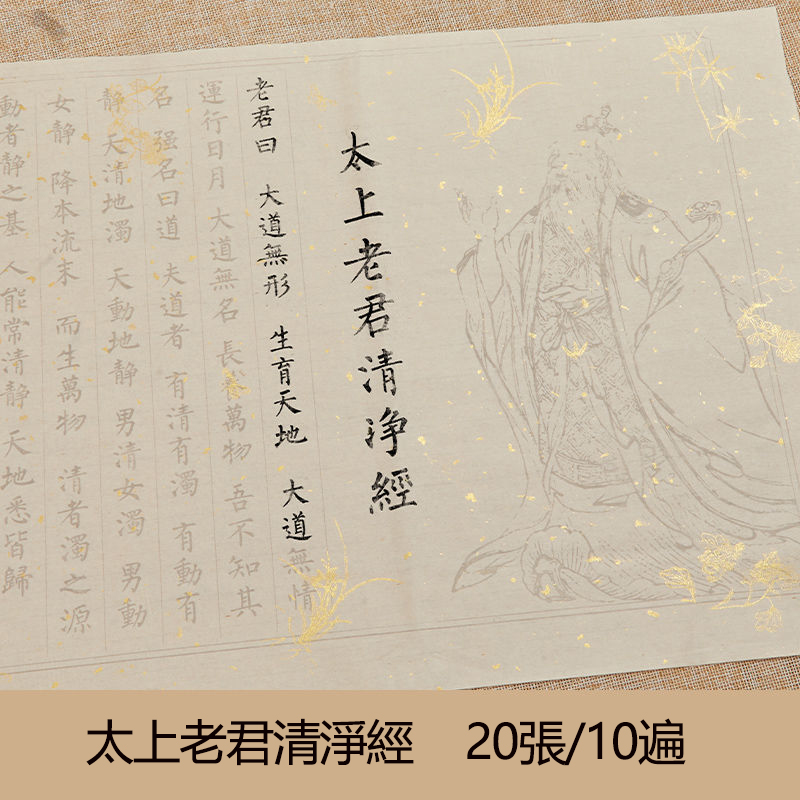 太上老君清净經
老君曰 大道無形 生育天地 大道無情
運行日月 大道無名 長養萬物 吾不知其
名 强名曰道 夫道者 有清有濁 有動有
静 天清地濁 天動地静 男清女濁 男動
女静 降本流末 而生萬物 清者濁之源
動者静之基 人能常清静 天地悉皆歸
太上老君清淨經 20張/10遍